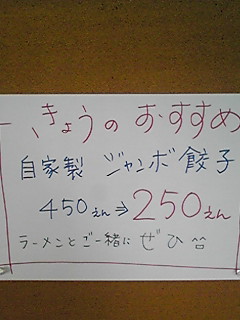 きょうのおすすめ
自家製 ジャンボ餃子
450えん⇒250えん
ラーメンとご一緒に ぜひ